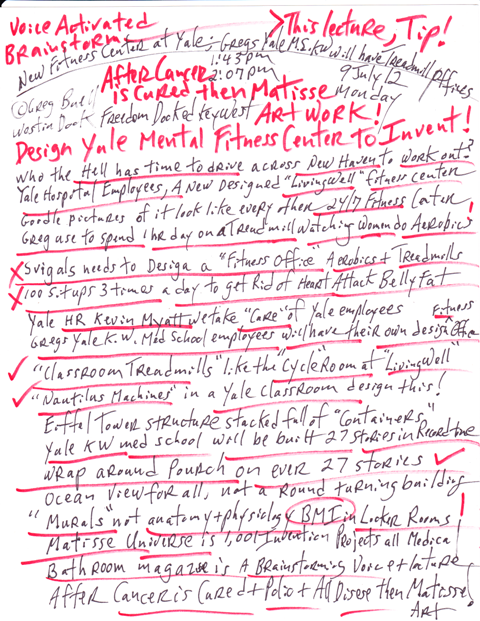 Voice Activated
Brainstorm
>This lecture, Tip!
New Fitness Center at Yale; Gregs Yale M.S. KW will have Treadmill Offices
1:43pm
2:07pm
9 July 12
Monday
After Cancer
is Cured then Matisse
@Greg
Westin Dock Freedom Docked Key West ART WORK!
Design Yale Mental Fitness Center To Invent!
Who the Hell has time to drive across New Haven to work out?
Yale Hospital Employees, A New Designed "LivingWell" fitness center
Goodle pictures of it look like every other 24/7 Fitness Center
Greg use to spend 1 hr day on a Treadmill watching Women do Aerobics!
X Svigals needs to Design a "Fitness Office" Aerobics + Treadmills
X 100 Situps 3 times a day to get Rid of Heart Attack Belly Fat
Yale HR Kevin Myatt we take "Care" of Yale employees
Gregs Yale K.W. Med School employees will have their own design Fitness Office
✓ "Classroom Treadmills" like the "Cycle" Room at "LivingWell"
✓ "Nautilus Machines" in a Yale Classroom design this!
Eiffel Tower structure stacked full of "Containers"
Yale KW med school will be built 27 stories in Record time
wrap around Pourch on ever 27 stories ✓
Ocean View for all, not a Round turning building
"Murals" not anatomy + physiology (BMI) in Locker Rooms!
Matisse Universe is 1,001 Invention Projects all Medical
Bathroom magazie is A Brainstorming Voice + lecture
After Cancer is Cured + Polio + All Disese then Matisse
Art!